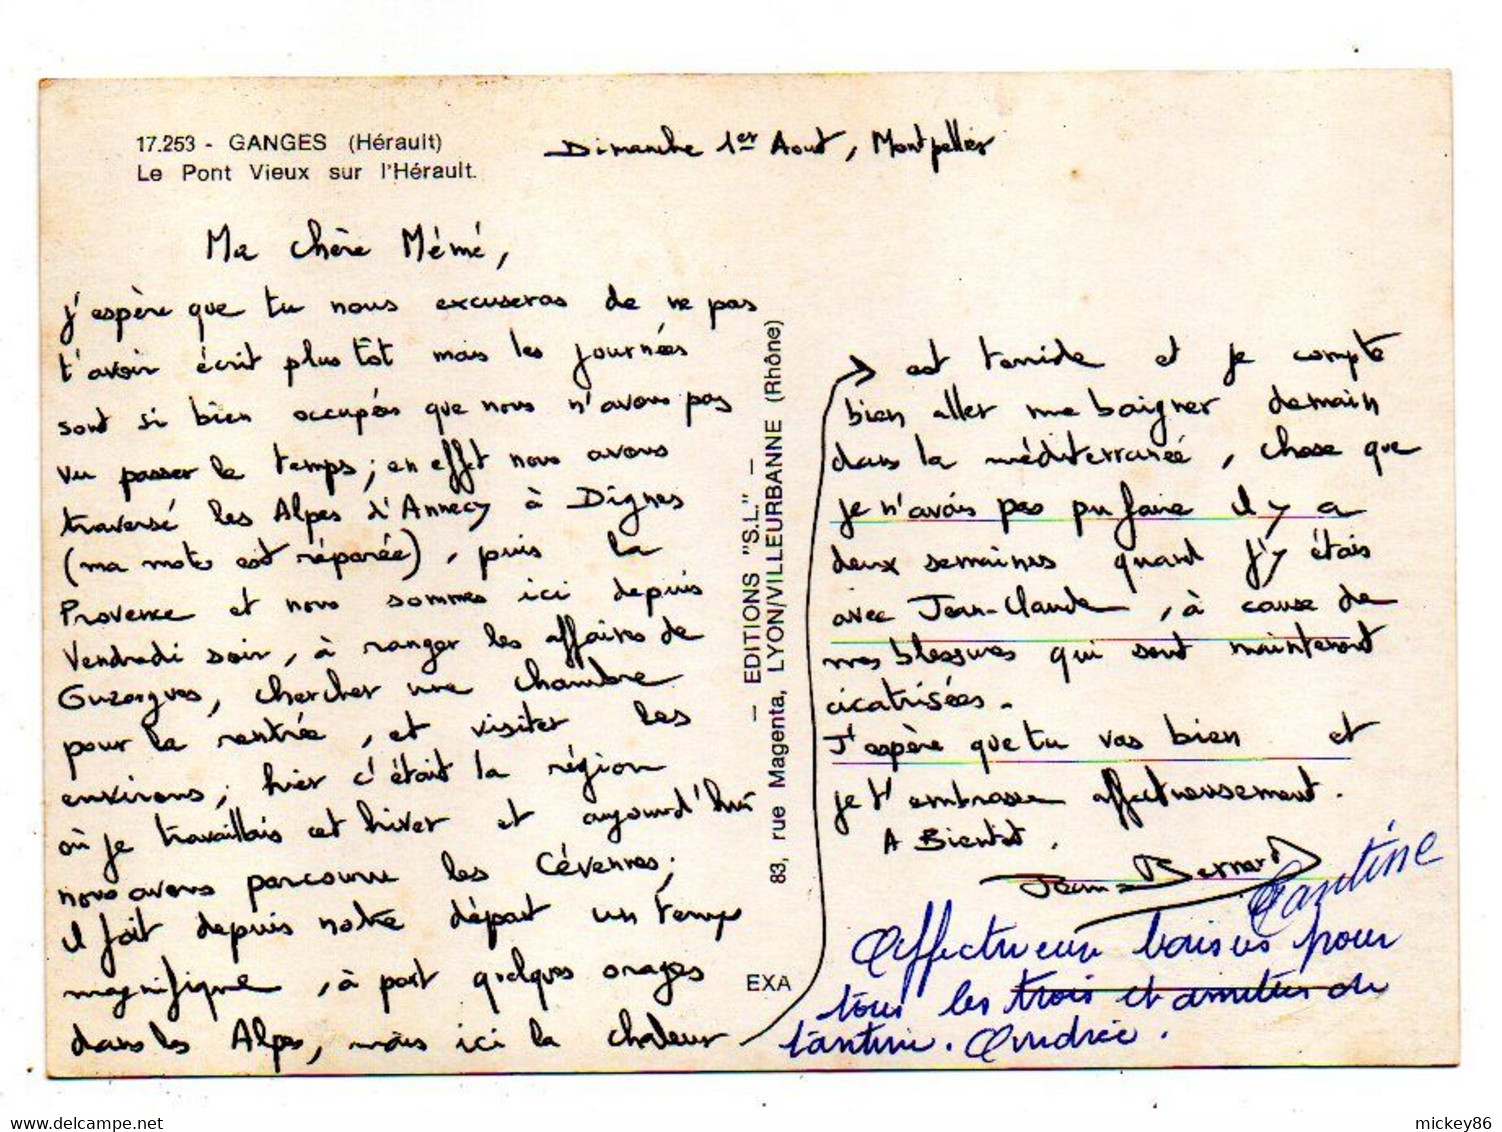 17.253 - GANGES (Hérault)
Le Pont Vieux sur l'Hérault.
Dimanche 1er Aout, Montpellier
Ma chère Mémé,
j'espère que tu nous excuseras de ne pas
t'avoir écrit plus tôt mais les journées
sont si bien occupées que nous n'avons pas
vu passer le temps; en effet nous avons
traversé les Alpes d'Annecy à Dignes
(ma moto est réparée), puis la
Provence et nous sommes ici depuis
Vendredi soir, à ranger les affaires de
chercher une chambre
pour la rentrée, et visiter les
environs; hier c'était la région
où je travaillais cet hiver et aujourd'hui
nous avons parcouru les Cévennes;
il fait depuis notre départ un temps
magnifique, à part quelques orages
dans les Alpes, mais ici la chaleur
— EDITIONS "S.L." —
83, rue Magenta, LYON/VILLEURBANNE (Rhône)
EXA
est torride et je compte
bien aller me baigner demain
dans la méditerranée, chose que
je n'avais pas pu faire il y a
deux semaines quand j'y étais
avec Jean-Claude, à cause de
mes blessures qui sont maintenant
cicatrisées.
J'espère que tu vas bien et
je t'embrasse affectueusement.
A Bientot.
Jean-Bernard
tantine
Affectueux baisers pour
tous les trois et amitiés de
tantine. Andrée.
mickey86